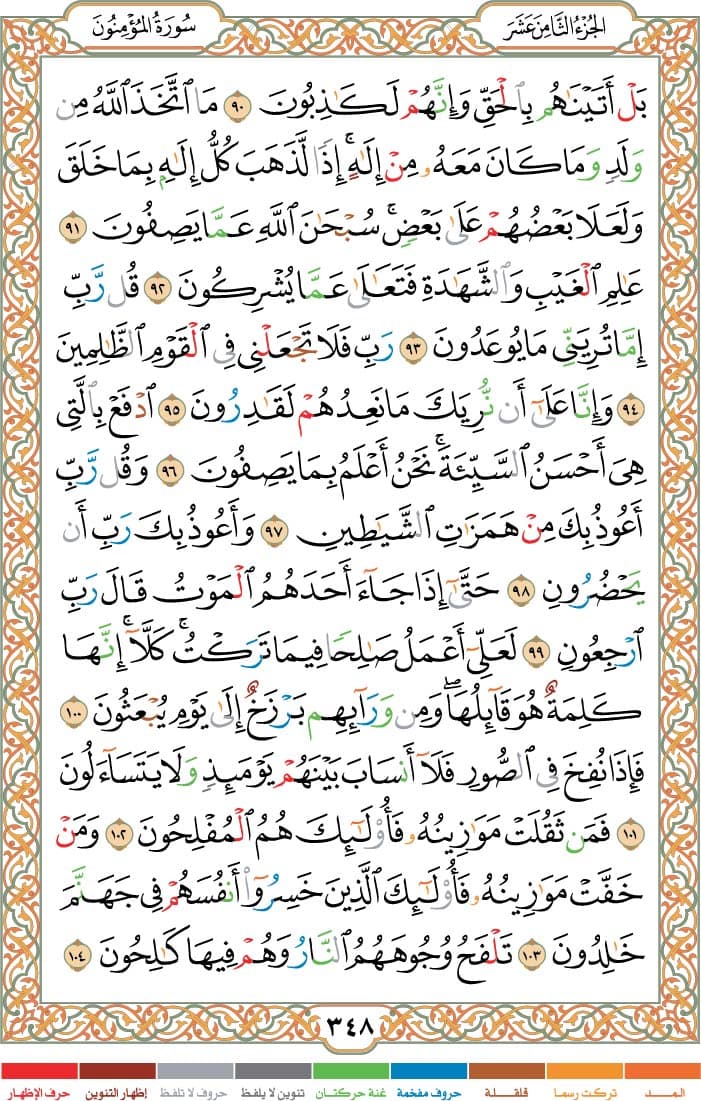 الجُزءُ الثَّامِنَ عَشَرَ
سُورَةُ المُؤْمِنُونَ
بَلْ أَتَيْنَٰهُم بِٱلْحَقِّ وَإِنَّهُمْ لَكَٰذِبُونَ ٩٠ مَا ٱتَّخَذَ ٱللَّهُ مِن
وَلَدٍ وَمَا كَانَ مَعَهُۥ مِنْ إِلَٰهٍ ۚ إِذًا لَّذَهَبَ كُلُّ إِلَٰهٍ بِمَا خَلَقَ
وَلَعَلَا بَعْضُهُمْ عَلَىٰ بَعْضٍ ۚ سُبْحَٰنَ ٱللَّهِ عَمَّا يَصِفُونَ ٩١
عَٰلِمِ ٱلْغَيْبِ وَٱلشَّهَٰدَةِ فَتَعَٰلَىٰ عَمَّا يُشْرِكُونَ ٩٢ قُل رَّبِّ
إِمَّا تُرِيَنِّي مَا يُوعَدُونَ ٩٣ رَبِّ فَلَا تَجْعَلْنِي فِي ٱلْقَوْمِ ٱلظَّٰلِمِينَ
٩٤ وَإِنَّا عَلَىٰٓ أَن نُّرِيَكَ مَا نَعِدُهُمْ لَقَٰدِرُونَ ٩٥ ٱدْفَعْ بِٱلَّتِي
هِيَ أَحْسَنُ ٱلسَّيِّئَةَ ۚ نَحْنُ أَعْلَمُ بِمَا يَصِفُونَ ٩٦ وَقُل رَّبِّ
أَعُوذُ بِكَ مِنْ هَمَزَٰتِ ٱلشَّيَٰطِينِ ٩٧ وَأَعُوذُ بِكَ رَبِّ أَن
يَحْضُرُونِ ٩٨ حَتَّىٰٓ إِذَا جَآءَ أَحَدَهُمُ ٱلْمَوْتُ قَالَ رَبِّ
ٱرْجِعُونِ ٩٩ لَعَلِّيٓ أَعْمَلُ صَٰلِحًا فِيمَا تَرَكْتُ ۚ كَلَّآ ۚ إِنَّهَا
كَلِمَةٌ هُوَ قَآئِلُهَا ۖ وَمِن وَرَآئِهِم بَرْزَخٌ إِلَىٰ يَوْمِ يُبْعَثُونَ ١٠٠
فَإِذَا نُفِخَ فِي ٱلصُّورِ فَلَآ أَنسَابَ بَيْنَهُمْ يَوْمَئِذٍ وَلَا يَتَسَآءَلُونَ
١٠١ فَمَن ثَقُلَتْ مَوَٰزِينُهُۥ فَأُو۟لَٰٓئِكَ هُمُ ٱلْمُفْلِحُونَ ١٠٢ وَمَنْ
خَفَّتْ مَوَٰزِينُهُۥ فَأُو۟لَٰٓئِكَ ٱلَّذِينَ خَسِرُوٓا۟ أَنفُسَهُمْ فِي جَهَنَّمَ
خَٰلِدُونَ ١٠٣ تَلْفَحُ وُجُوهَهُمُ ٱلنَّارُ وَهُمْ فِيهَا كَٰلِحُونَ ١٠٤
٣٤٨
المــد تركت رسما قلقلة حروف مفخمة غنة حركتان تنوين لا يلفظ حروف لا تلفظ إظهار التنوين حرف الإظهار